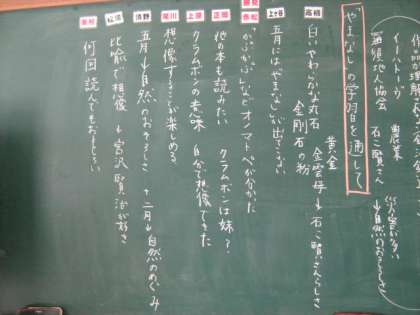 イーハトーヴ　農業
羅須地人協会　石こ賢さん
↓自然のおそろしさ
やまなしの学習を通して
黄金
高橋
白い やわらかな丸石　金雲母 ↓ 石こ賢さんらしさ
金剛石の粉
五月にはやまなしが出てこない
かぷかぷなどオノマトペが分かった
他の本も読みたい　クラムボンは妹?
クラムボンの意味　自分で想像できた
想像することが楽しめる
五月 ↓ 自然のおそろしさ　十二月 ↓ 自然のめぐみ
比喩で想像 ↓ 宮沢賢治が好き
何回読んでもおもしろい